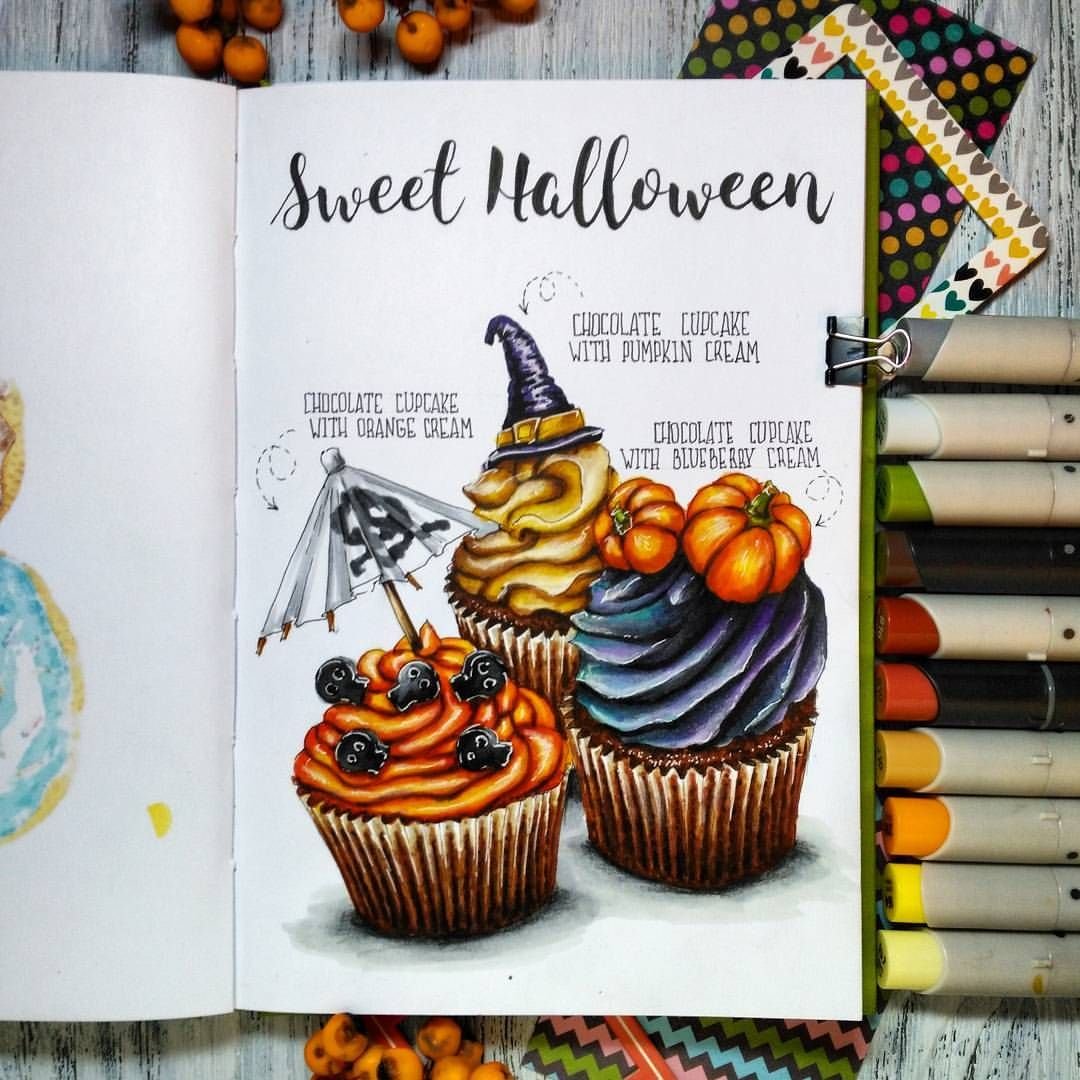 Sweet Halloween
CHOCOLATE CUPCAKE
WITH PUMPKIN CREAM
CHOCOLATE CUPCAKE
WITH ORANGE CREAM
CHOCOLATE CUPCAKE
WITH BLUEBERRY CREAM